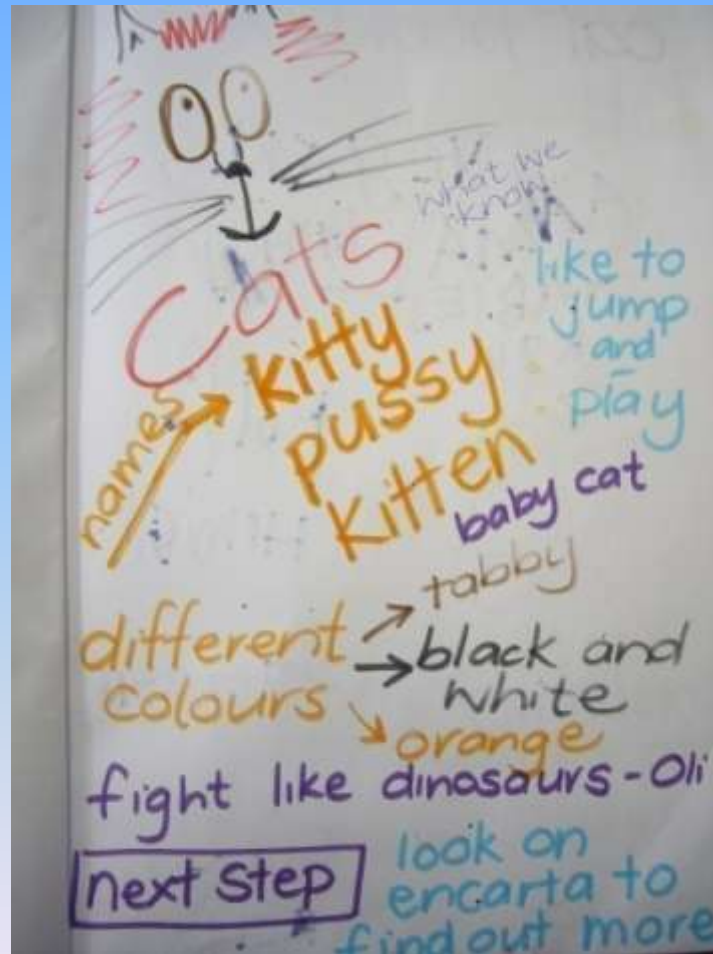 what we
know
Cats
like to
jump
and
play
names
kitty
pussy
kitten
baby cat
different
colours
tabby
black and
white
orange
fight like dinosaurs - Oli
next step
look on
encarta to
find out more